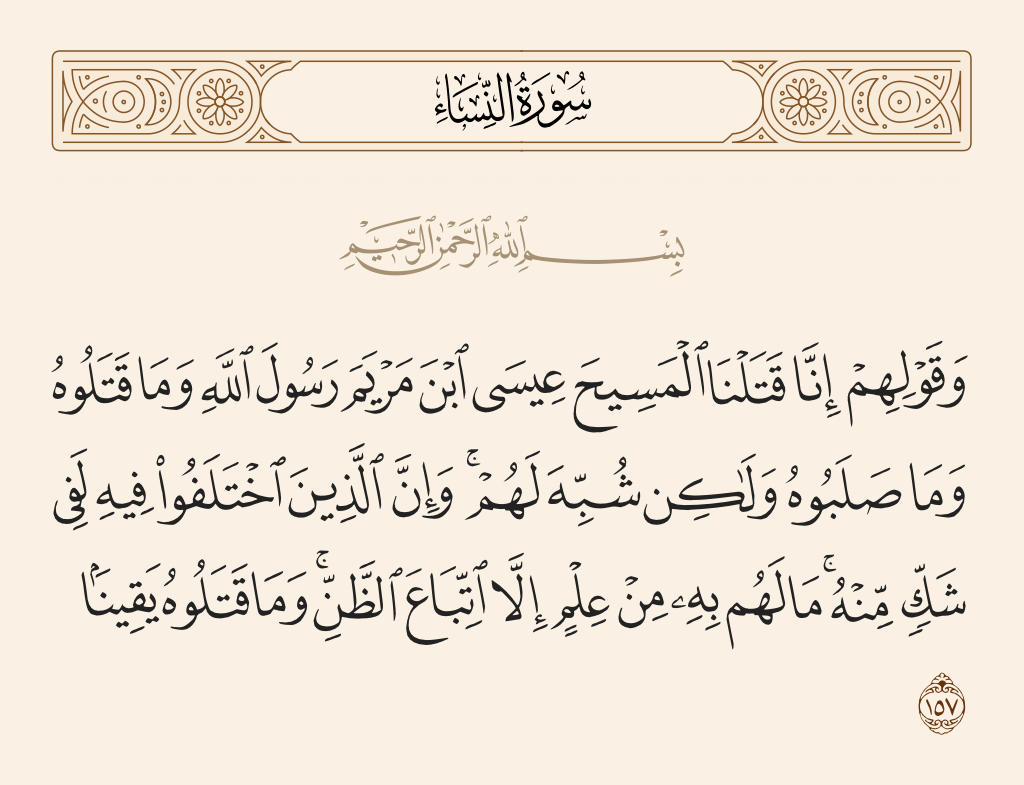 سُورَةُ النِّسَاءِ
بِسْمِ ٱللَّهِ ٱلرَّحْمَٰنِ ٱلرَّحِيمِ
وَقَوْلِهِمْ إِنَّا قَتَلْنَا ٱلْمَسِيحَ عِيسَى ٱبْنَ مَرْيَمَ رَسُولَ ٱللَّهِ وَمَا قَتَلُوهُ
وَمَا صَلَبُوهُ وَلَٰكِن شُبِّهَ لَهُمْ ۚ وَإِنَّ ٱلَّذِينَ ٱخْتَلَفُوا۟ فِيهِ لَفِى
شَكٍّ مِّنْهُ ۚ مَا لَهُم بِهِۦ مِنْ عِلْمٍ إِلَّا ٱتِّبَاعَ ٱلظَّنِّ ۚ وَمَا قَتَلُوهُ يَقِينًۢا
١٥٧